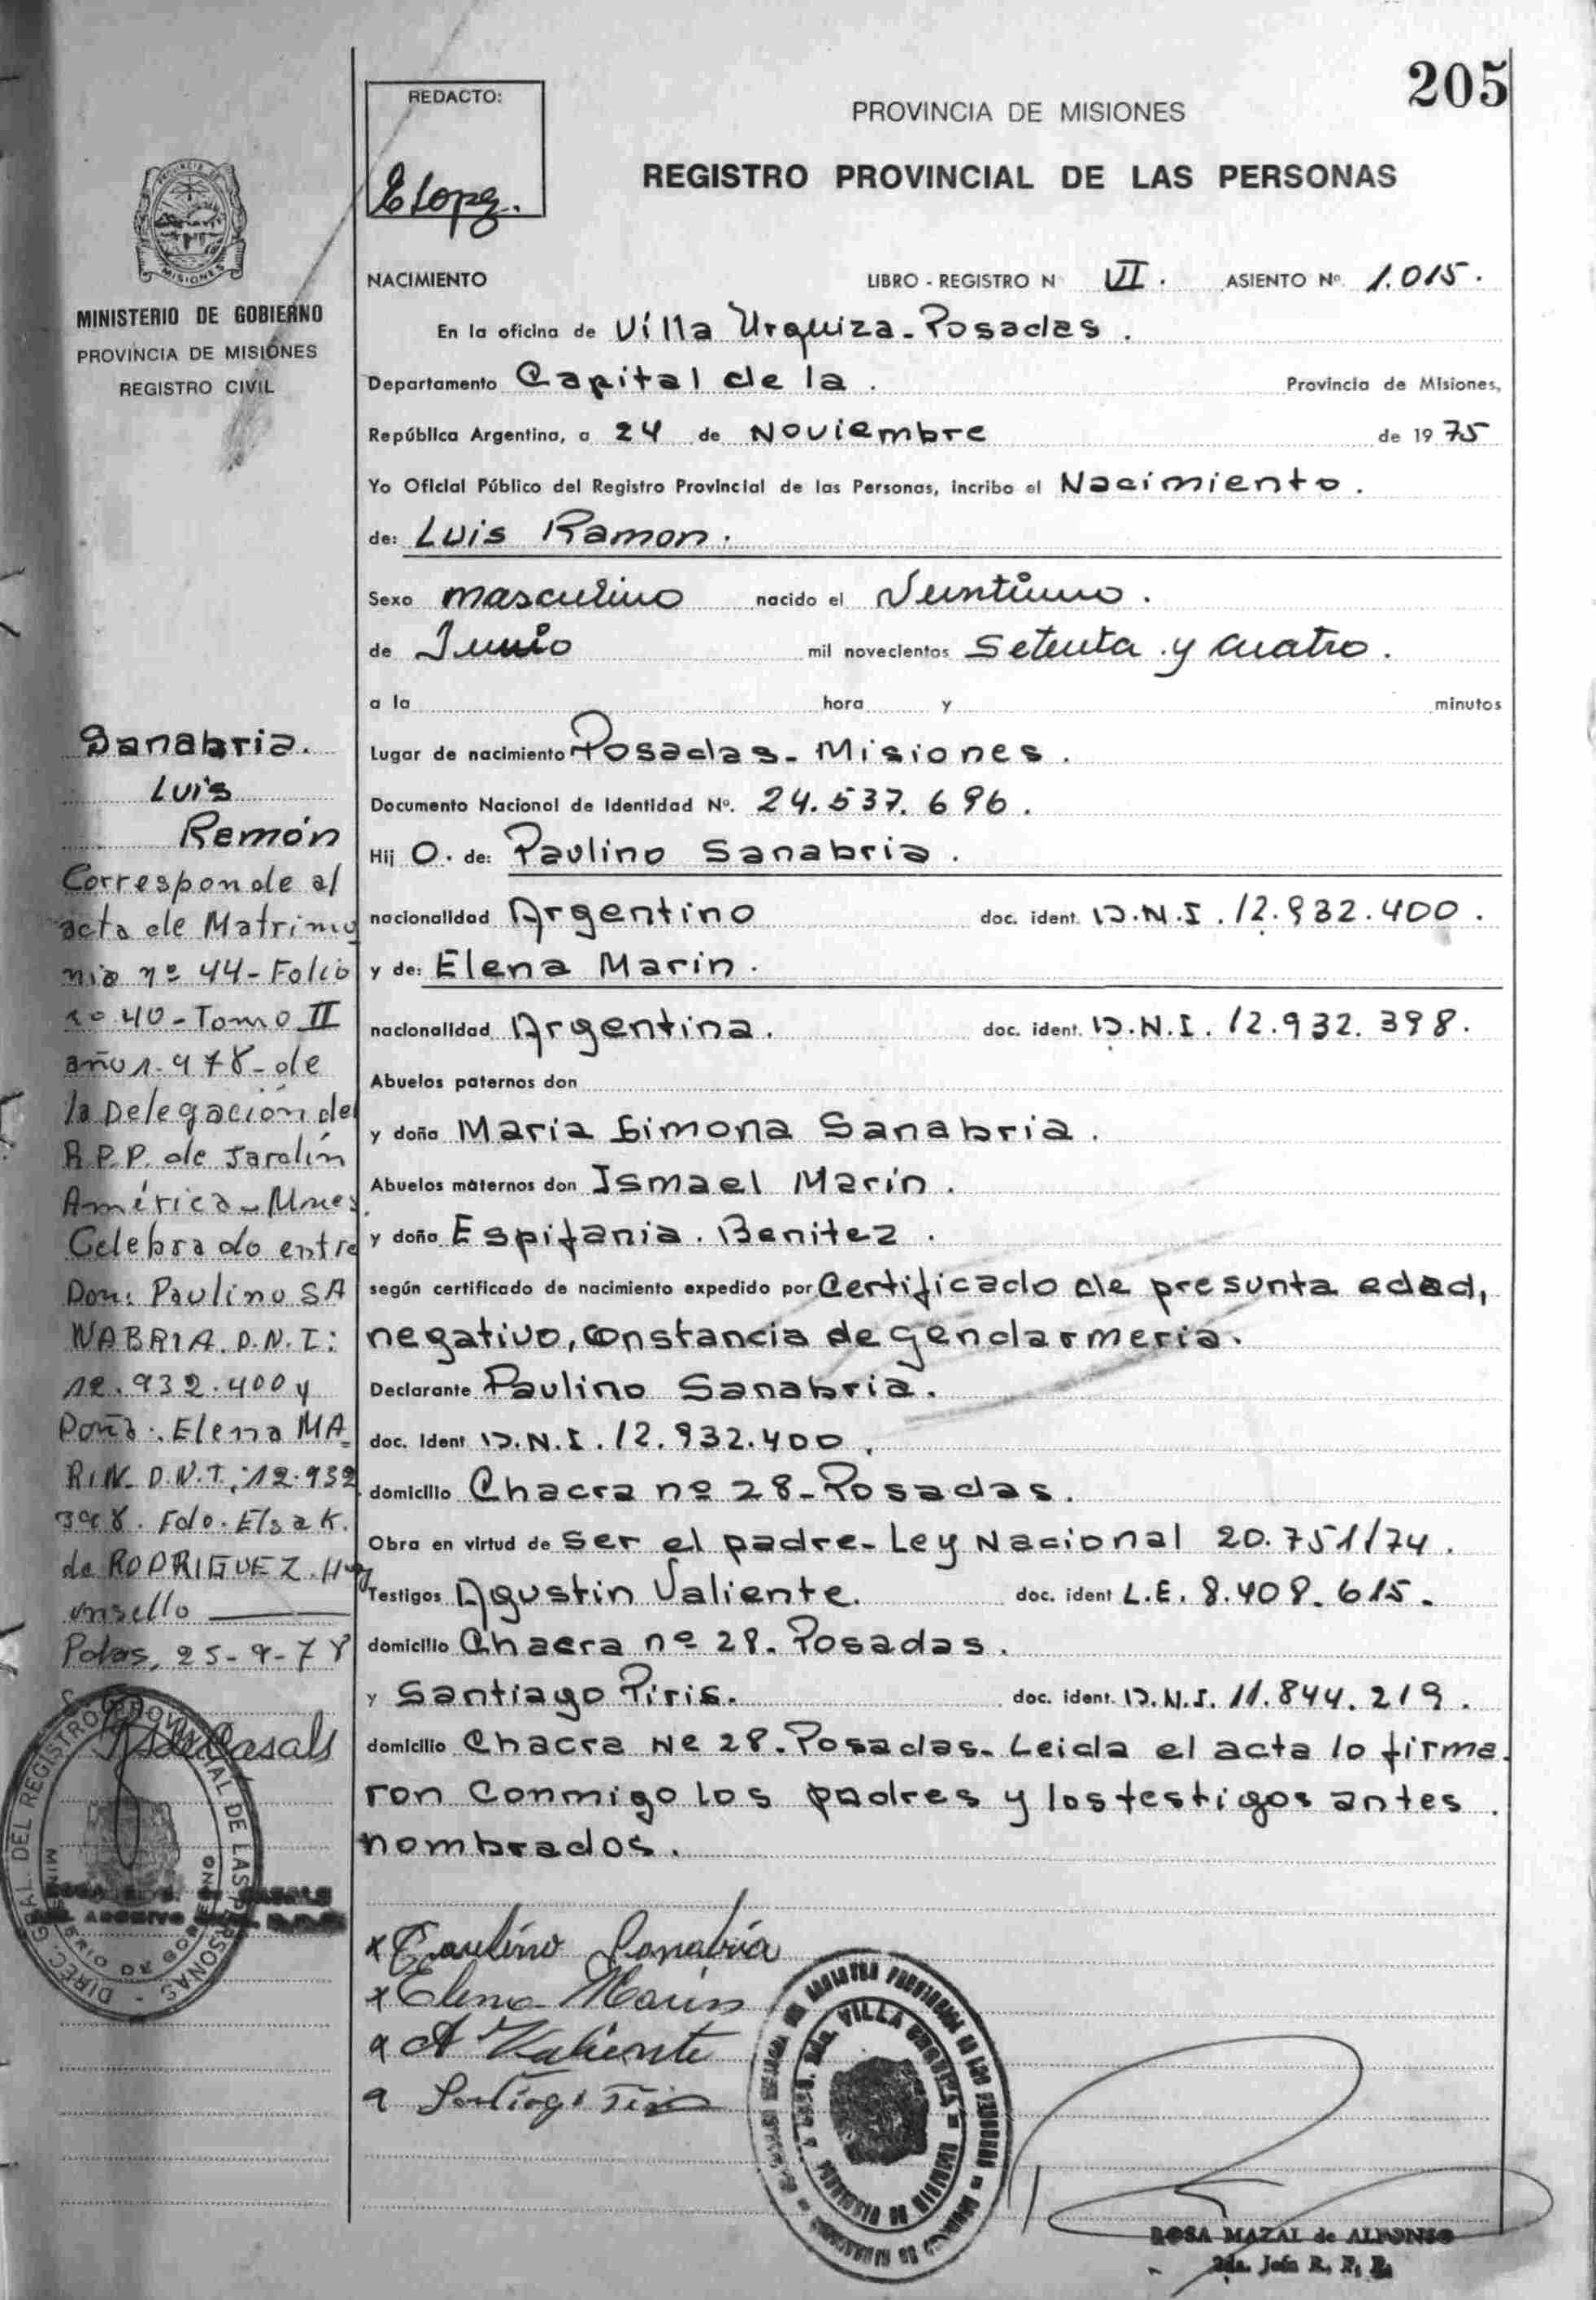 205
REDACTO:
E Lopez.
PROVINCIA DE MISIONES
REGISTRO PROVINCIAL DE LAS PERSONAS
MISIONES
MINISTERIO DE GOBIERNO
PROVINCIA DE MISIONES
REGISTRO CIVIL
NACIMIENTO LIBRO - REGISTRO N VI. ASIENTO Nº 1.015.
En la oficina de Villa Urquiza-Posadas.
Departamento Capital de la. Provincia de Misiones,
República Argentina, a 24 de Noviembre de 1975
Yo Oficial Público del Registro Provincial de las Personas, incribo el Nacimiento.
de: Luis Ramon.
Sexo masculino nacido el Veintiuno.
de Junio mil novecientos Setenta y cuatro.
a la hora y minutos
Lugar de nacimiento Posadas- Misiones.
Documento Nacional de Identidad Nº. 24.537.696.
Hij O. de: Paulino Sanabria.
nacionalidad Argentino doc. ident. D.N.I. 12.932.400.
y de: Elena Marin.
nacionalidad Argentina. doc. ident. D.N.I. 12.932.398.
Abuelos paternos don
y doña Maria Simona Sanabria.
Abuelos maternos don Ismael Marin.
y doña Espifania. Benitez.
según certificado de nacimiento expedido por Certificado de presunta edad,
negativo, constancia de gendarmeria.
Declarante Paulino Sanabria.
doc. Ident D.N.I. 12.932.400.
domicilio Chacra nº 28-Posadas.
Obra en virtud de ser el padre- Ley Nacional 20.751/74.
Testigos Agustin Valiente. doc. ident L.E. 8.408.615.
domicilio Chacra nº 28. Posadas.
y Santiago Piris. doc. ident. D.N.I. 11.844.219.
domicilio Chacra Nº 28. Posadas. Leida el acta lo firma
ron conmigo los padres y los testigos antes
nombrados.
Sanabria.
Luis
Ramón
Corresponde al
acta de Matrimo
nio nº 44-Folio
nº 40-Tomo II
año 1.978-de
la Delegación del
R.P.P. de Jardín
América-Mnes
Celebrado entre
Don: Paulino SA
NABRIA. D.N.I:
12.932.400 y
Doña: Elena MA
RIN. D.N.I.:12.932
398. Fdo. Elsa K.
de RODRIGUEZ. Hay
un sello
Pdas, 25-9-78
Casals
DIREC. GRAL. DEL REGISTRO PROVINCIAL DE LAS PERSONAS -
MINISTERIO DE GOBIERNO
x Paulino Sanabria
x Elena Marin
x A Valiente
x Santiago Piris
VILLA URQUIZA
ROSA MAZAL de ALFONSO
2da. Jefa R. P. P.